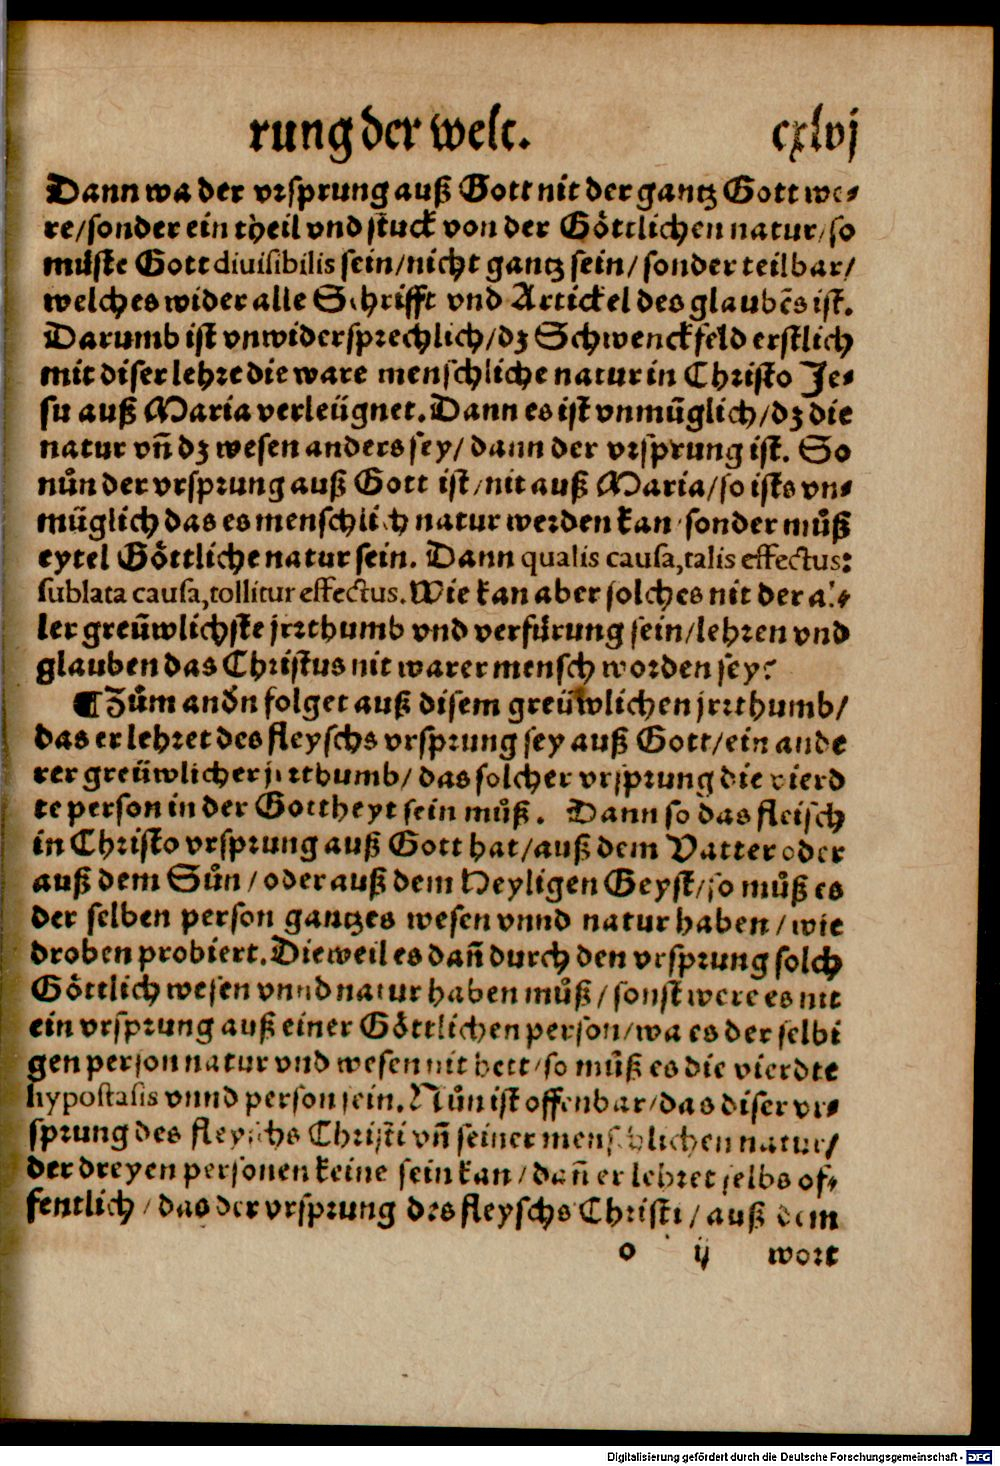 rung der welt. cxlvj
Dann wa der vrsprung auß Gott nit der gantz Gott we⸗
re/sonder ein theil vnd stuck von der Göttlichen natur/so
müste Gott diuisibilis sein/nicht gantz sein/ sonder teilbar/
welches wider alle Schrifft vnd Artickel des glaubēs ist.
Darumb ist vnwidersprechlich/dz Schwenckfeld erstlich
mit diser lehre die ware menschliche natur in Christo Je⸗
su auß Maria verleügnet. Dann es ist vnmüglich/dz die
natur vñ dz wesen anders sey/ dann der vrsprung ist. So
nůn der vrsprung auß Gott ist/nit auß Maria/so ists vn⸗
müglich das es menschlich natur werden kan/sonder můß
eytel Göttliche natur sein. Dann qualis causa,talis effectus:
sublata causa,tollitur effectus. Wie kan aber solches nit der al⸗
ler greüwlichste jrrthumb vnd verfürung sein/lehren vnd
glauben das Christus nit warer mensch worden sey?
¶ Zům andń folget auß disem greüwlichen jrrthumb/
das er lehret des fleyschs vrsprung sey auß Gott/ein ande
rer greüwlicher jrrthumb/ das solcher vrsprung die vierd
te person in der Gottheyt sein můß. Dann so das fleisch
in Christo vrsprung auß Gott hat/auß dem Vatter oder
auß dem Sůn/oder auß dem Heyligen Geyst/so můß es
der selben person gantzes wesen vnnd natur haben/wie
droben probiert. Dieweil es dañ durch den vrsprung solch
Göttlich wesen vnnd natur haben můß/ sonst were es nit
ein vrsprung auß einer Göttlichen person/wa es der selbi
gen person natur vnd wesen nit hett/so můß es die vierdte
hypostasis vnnd person sein. Nůn ist offenbar/das diser vr⸗
sprung des fleyschs Christi vñ seiner menschlichen natur/
der dreyen personen keine sein kan/dañ er lehret selbs of⸗
fentlich/das der vrsprung des fleyschs Christi/auß dem
o ij wort
Digitalisierung gefördert durch die Deutsche Forschungsgemeinschaft - DFG